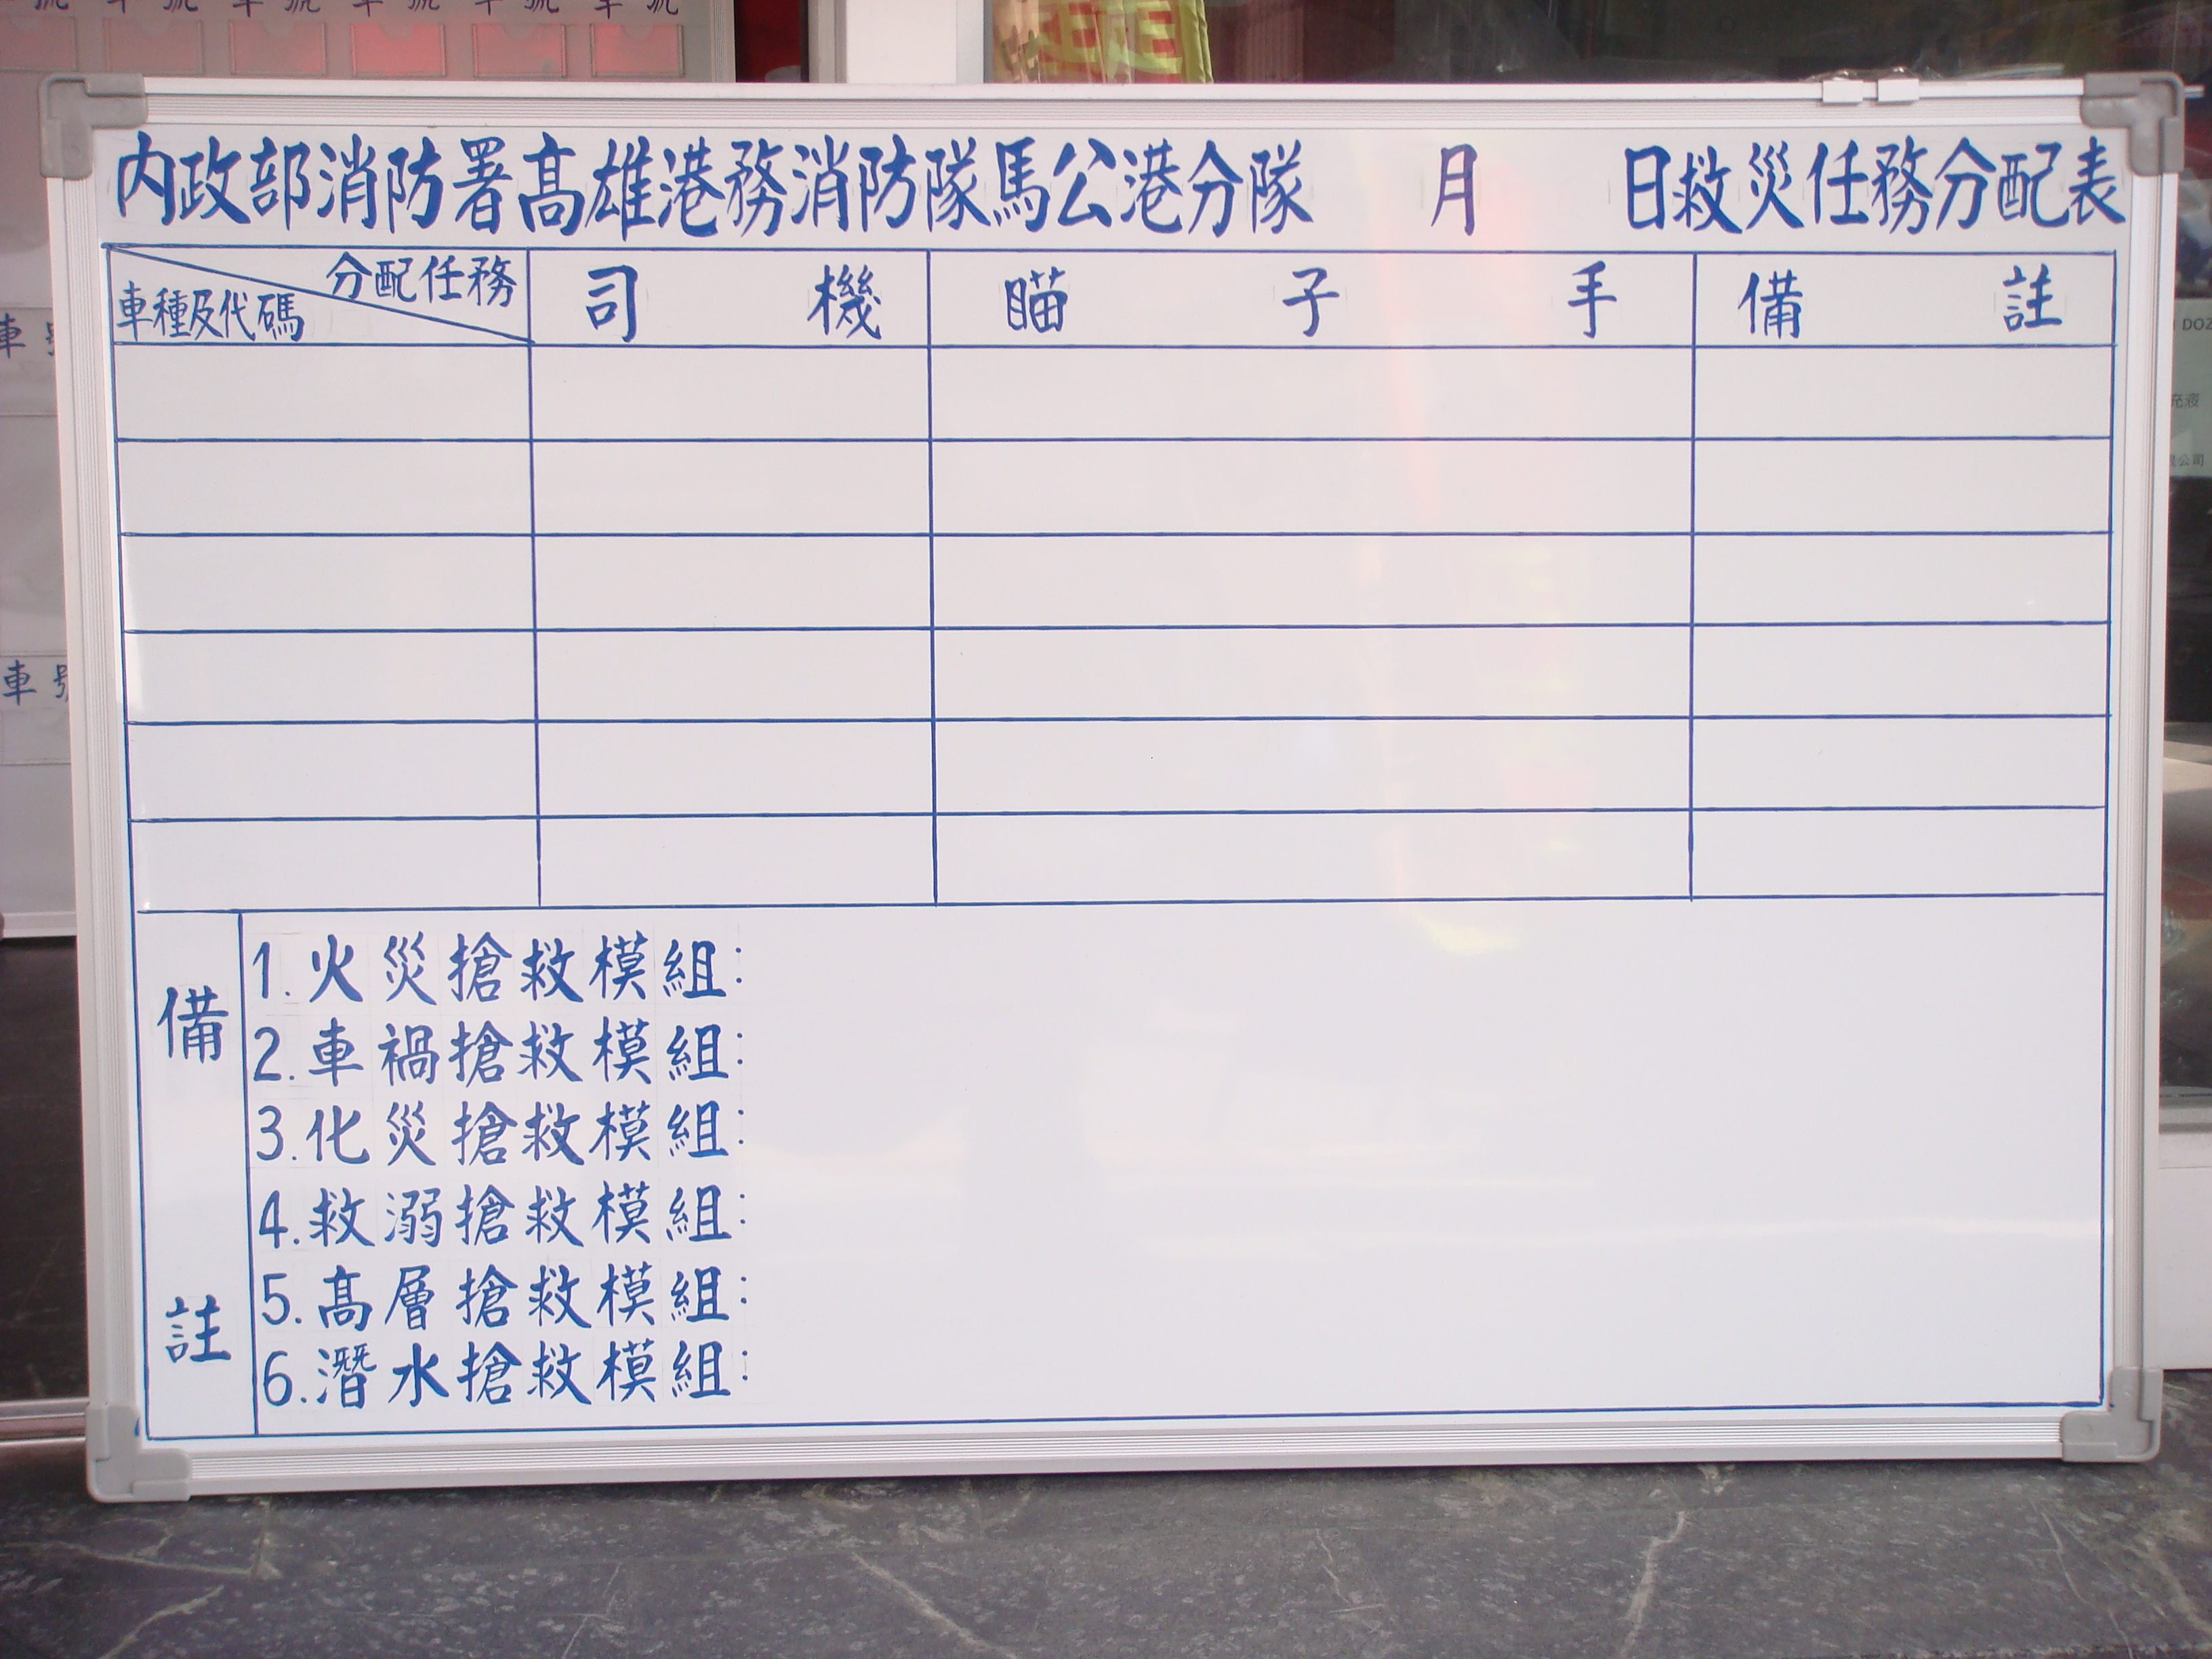 內政部消防署高雄港務消防隊馬公港分隊 月 日救災任務分配表
分配任務
車種及代碼
司 機
瞄 子 手
備 註
備 註
1.火災搶救模組:
2.車禍搶救模組:
3.化災搶救模組:
4.救溺搶救模組:
5.高層搶救模組:
6.潛水搶救模組:
車號
車號